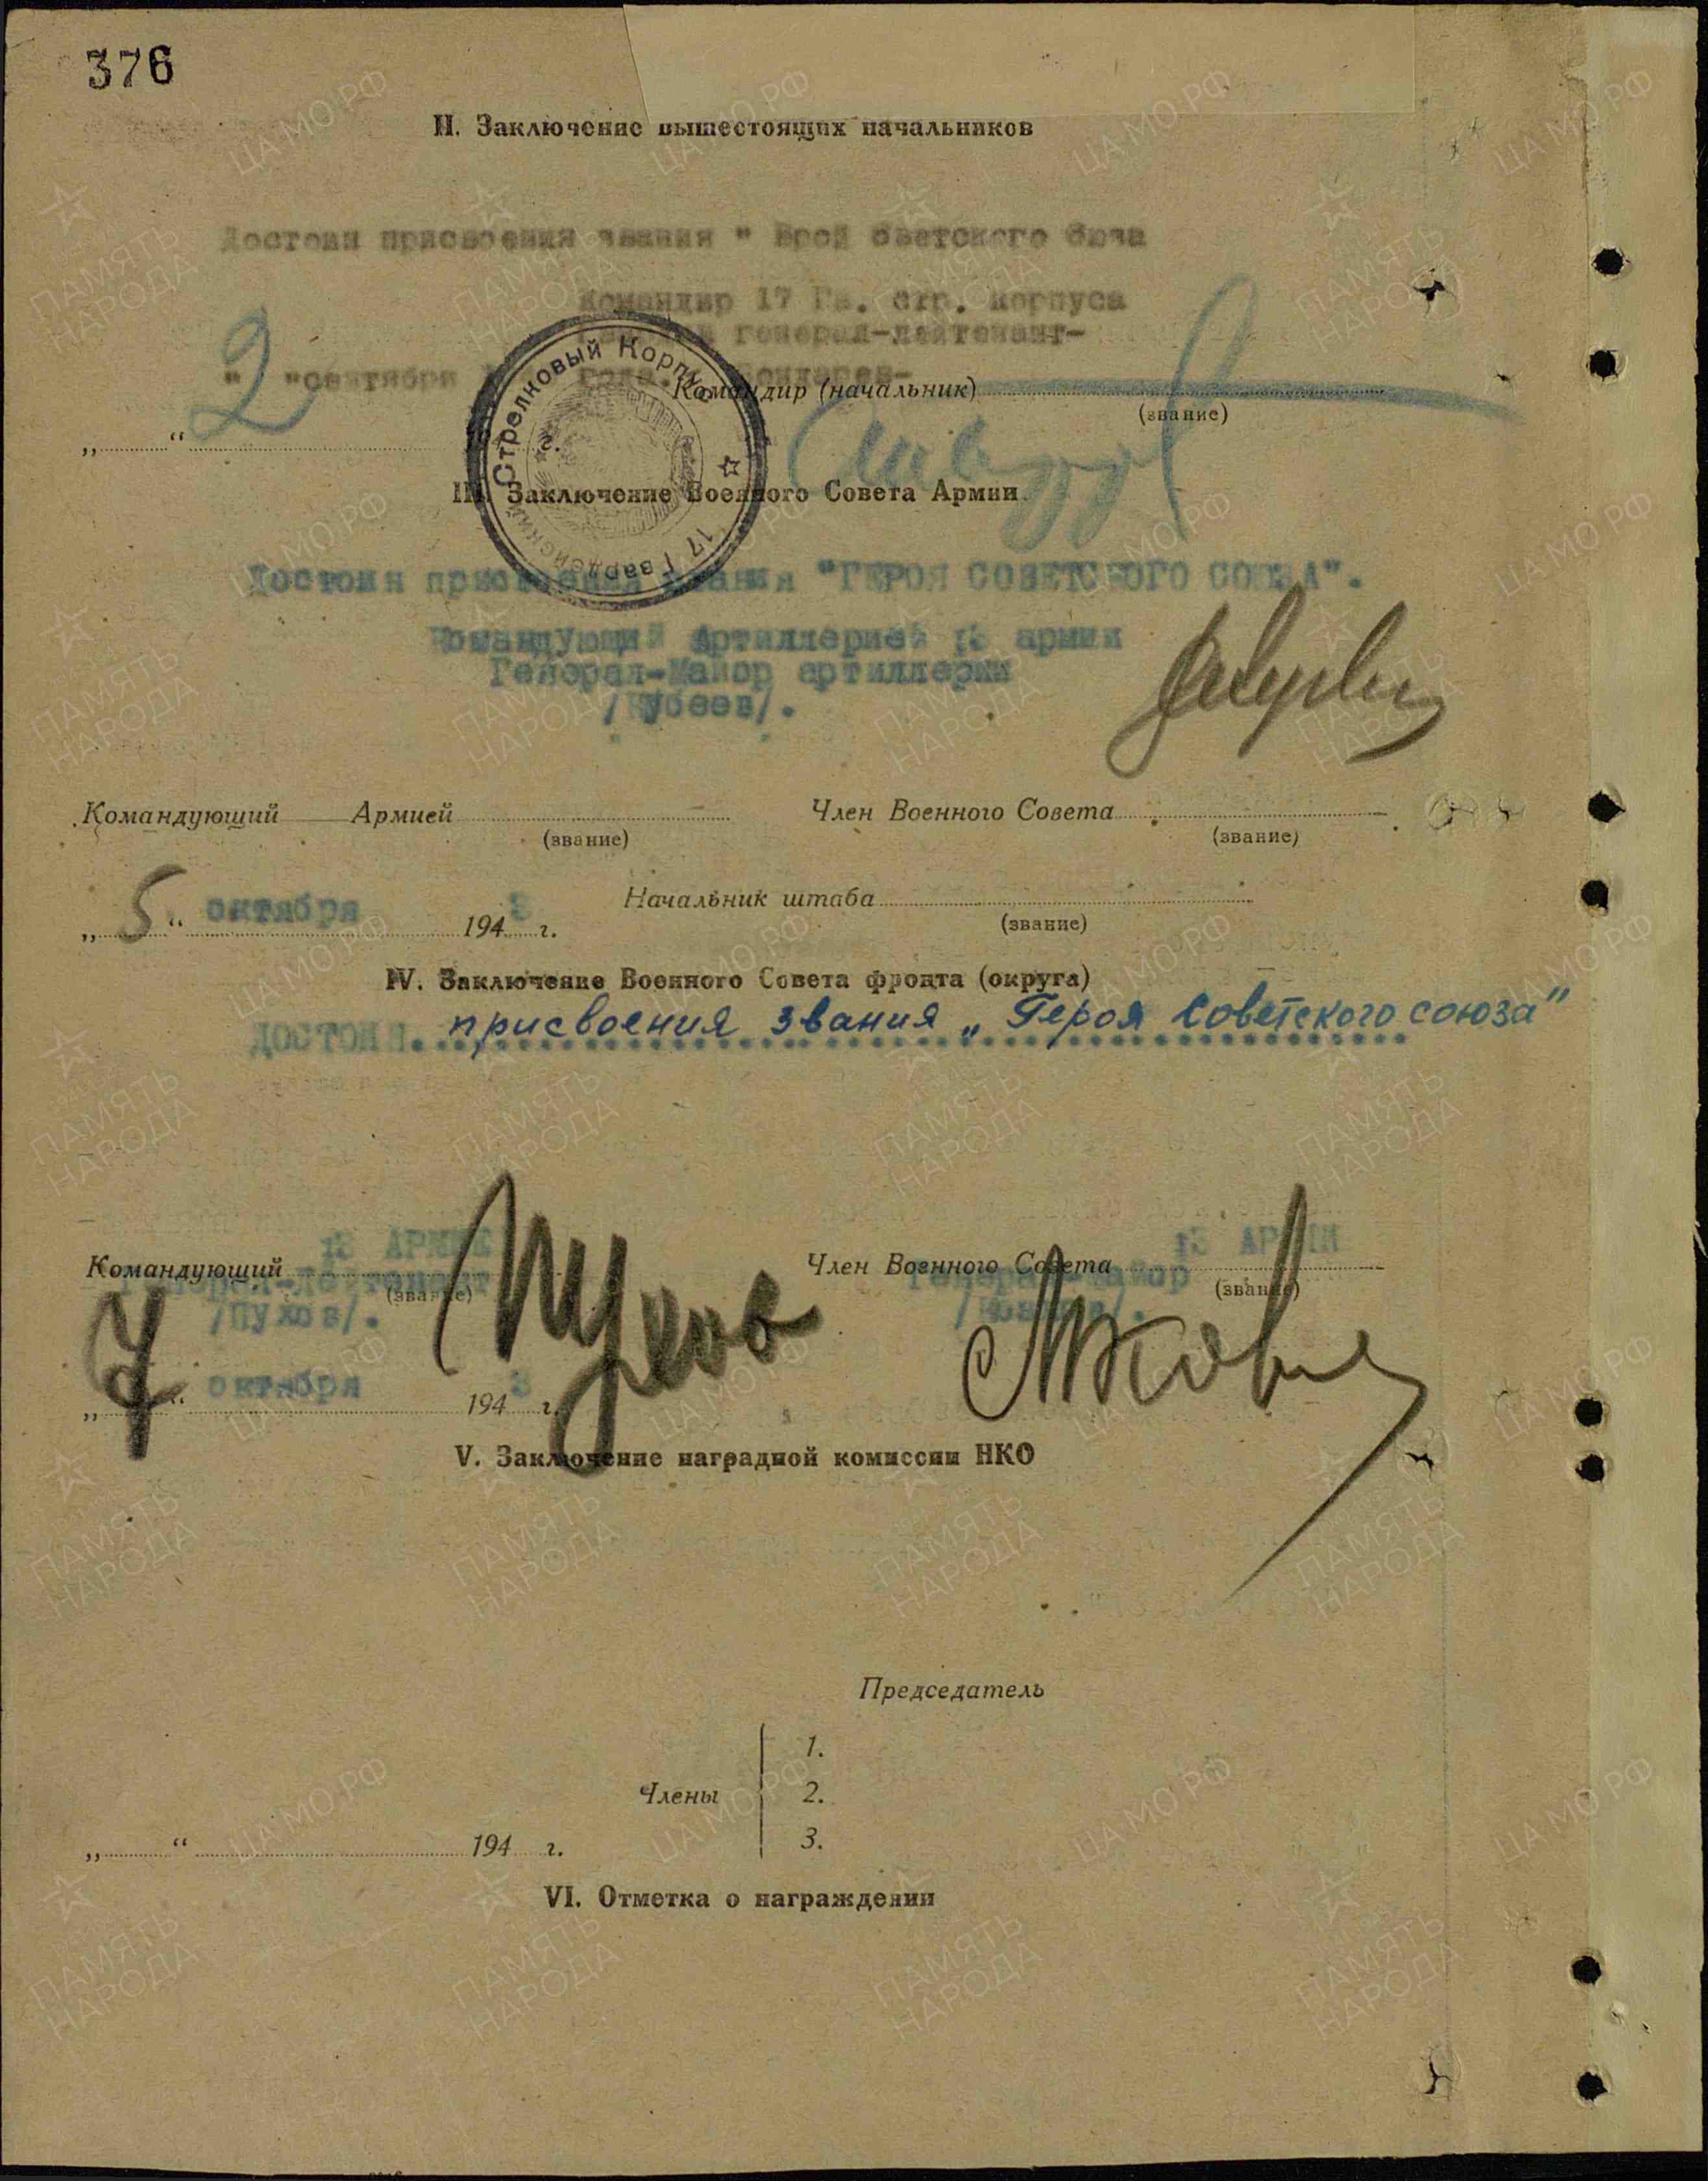 376
II. Заключение вышестоящих начальников
Достоин присвоения звания " Ерой оветского оюза
Командир 17 Гв. стр. корпуса
генерал-лейтенант-
2
" "сентября года. Бондарев-
Командир (начальник)
(звание)
„ “ г.
Стрелковый Корпус
17 Гвардейский
III. Заключение Военного Совета Армии
Достоин присвоения звания "ГЕРОЯ СОВЕТСКОГО СОЮЗА".
Командующий Артиллерией 13 армии
Генерал-Майор артиллерии
Командующий Армией Член Военного Совета
(звание) (звание)
„5“ октября 1943 г. Начальник штаба
(звание)
IV. Заключение Военного Совета фронта (округа)
ДОСТОИН присвоения звания „Героя Советского союза"
13 АРМИЕЙ 13 АРМИИ
Командующий Член Военного Совета
Генерал-лейтенант Генерал-майор
(звание) (звание)
/Пухов/.
Пухов
„7“ октября 1943 г.
V. Заключение наградной комиссии НКО
Председатель
1.
Члены 2.
3.
„ “ 194 г.
VI. Отметка о награждении
ПАМЯТЬ НАРОДА
ЦА МО РФ